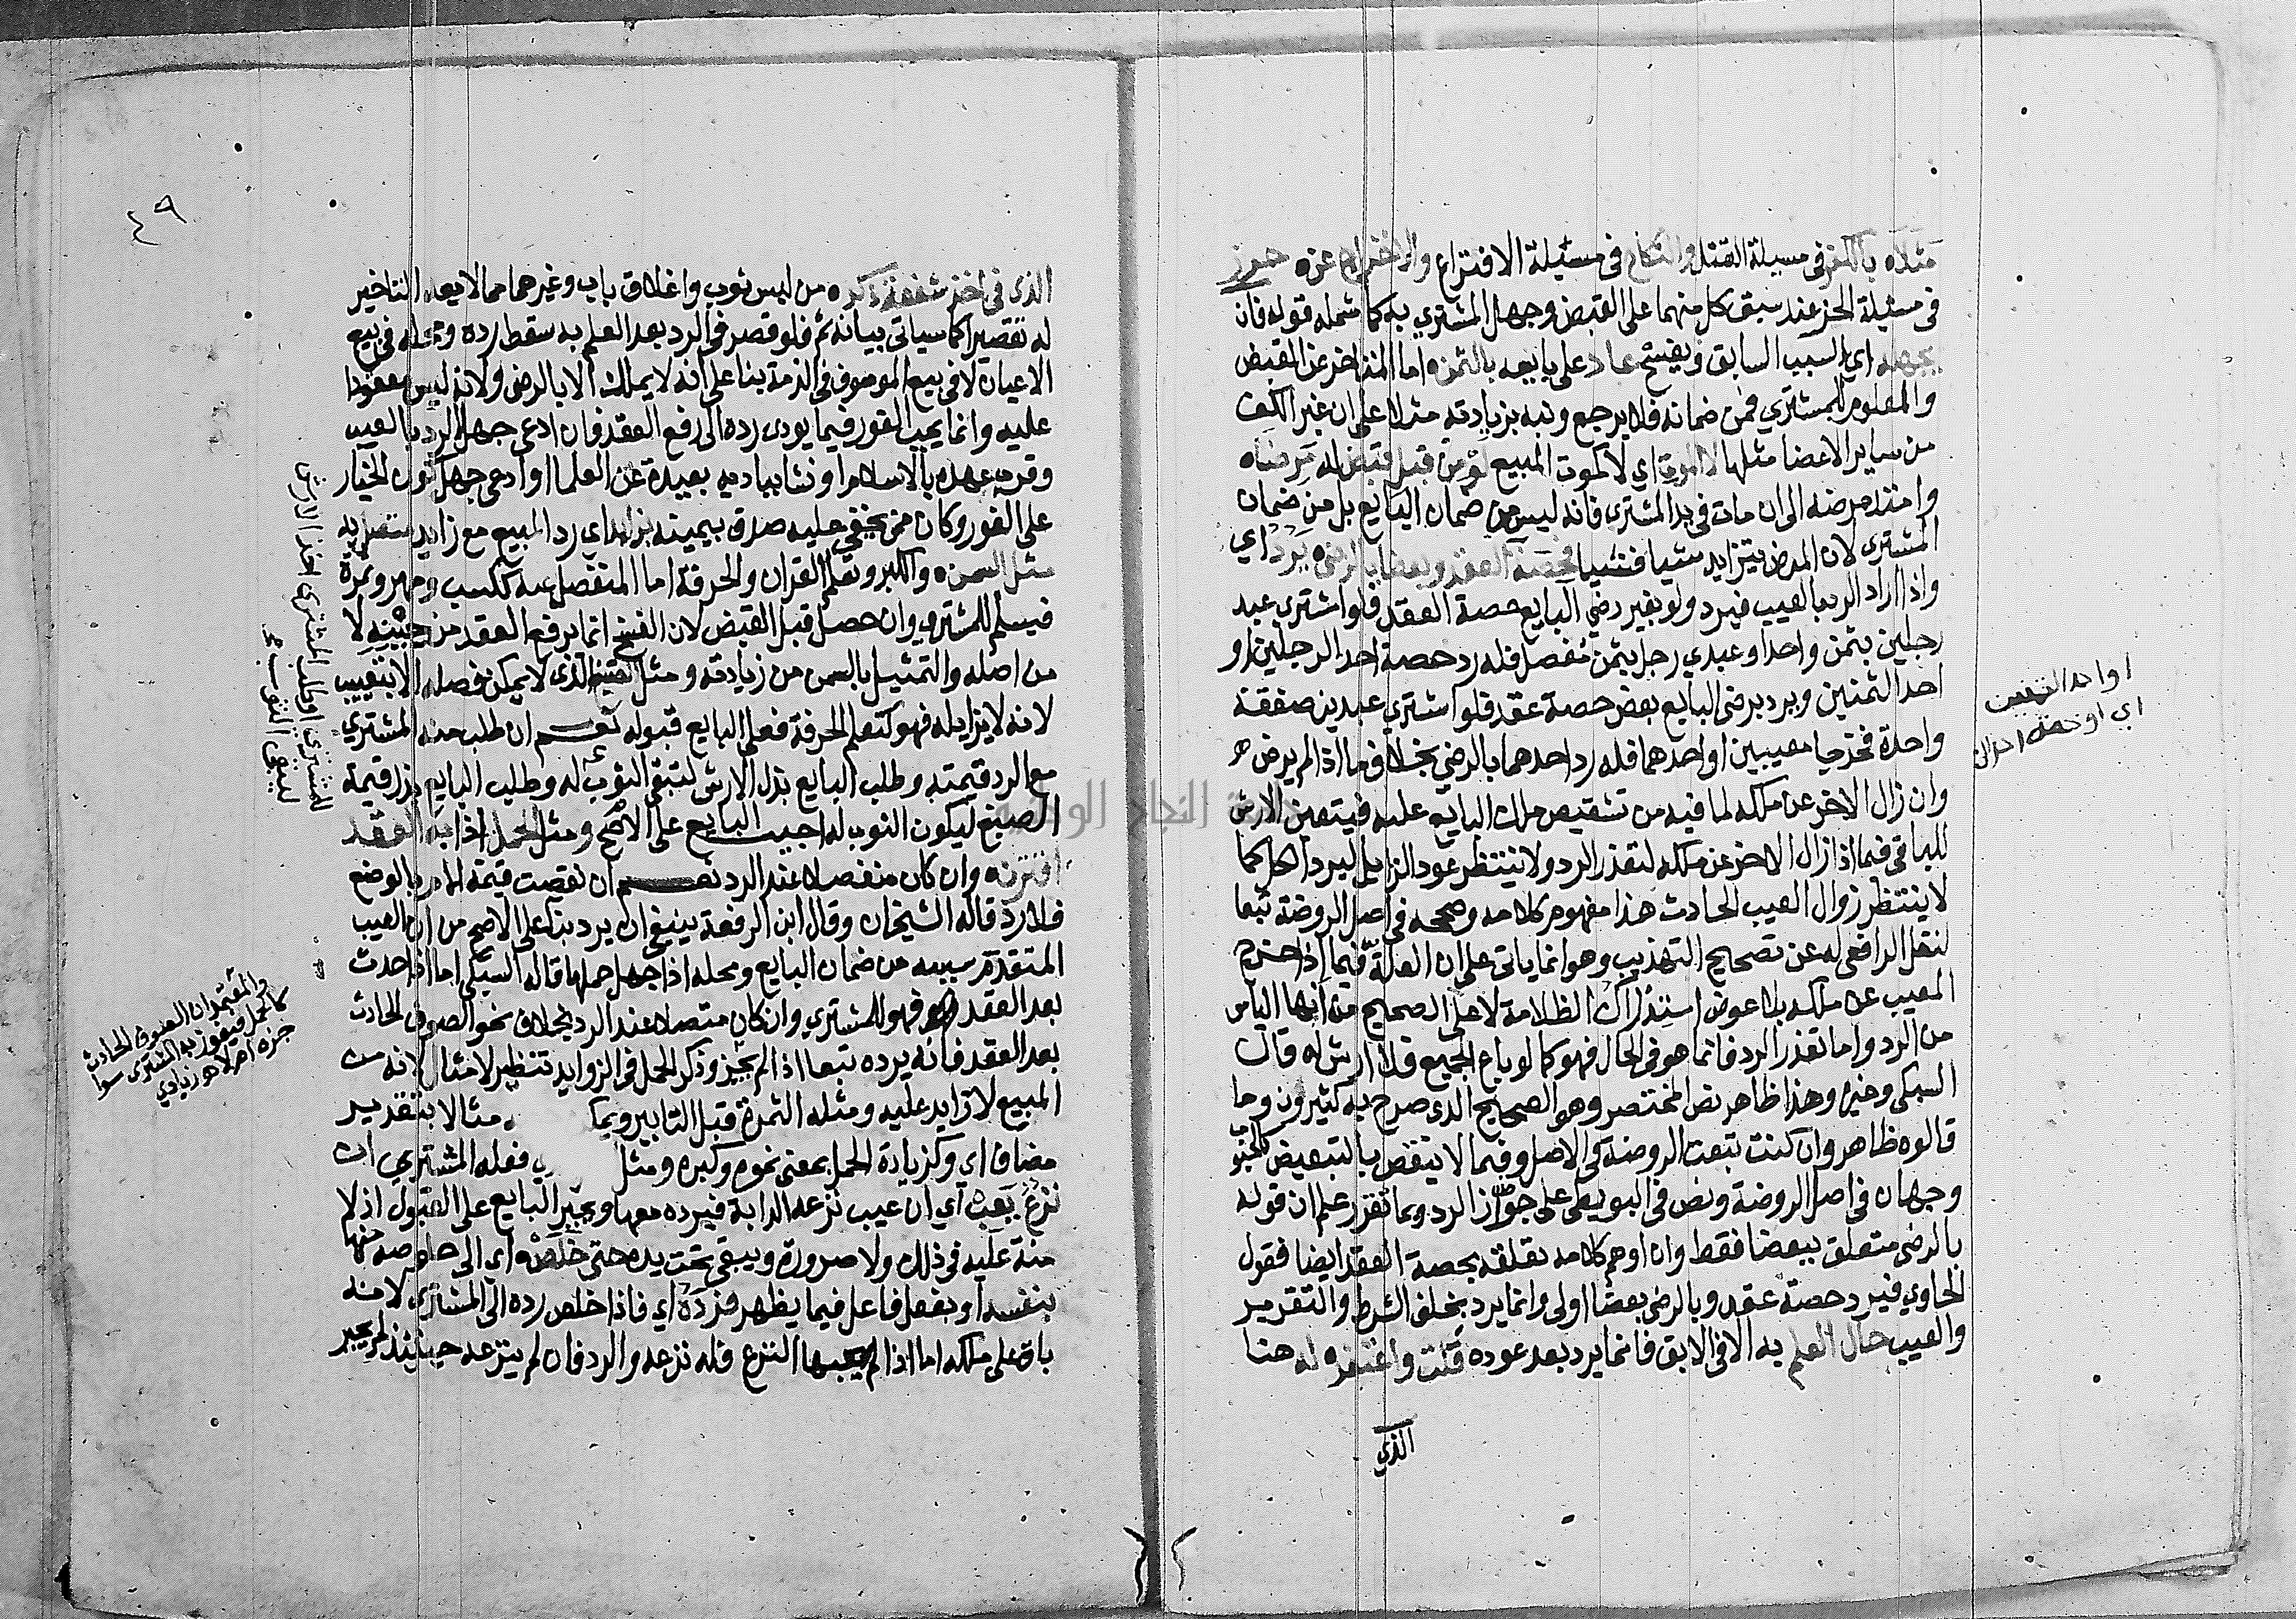 مثلاه بالكفر في مسيلة القتل والنكاح في مسئيلة الافتزاع والافتراع عزه حوز
في مسئيلة الحز عند سبق كل منهما على القبض وجهل المشتري به كما شمله قوله فان
يجهله اي السبب السابق ويفسخ عاد على بايعه بالثمن اما المتاخر عن القبض
والمعلوم للمشتري فمن ضمانه فلا يرجع ونبه بزيادته مثلا على ان غير الكف
من ساير الاعضا مثلها لا الموت اي لا كموت المبيع لو من قبل قبض له مرضاه
وامتد مرضه الى ان مات في يد المشتري فانه ليس من ضمان البايع بل من ضمان
المشتري لان المرض يتزايد شيا فشيا فحصة العقد وبعضا بالرضى يرد اي
واذا اراد الرد بالعيب فيرد ولو بغير رضى البايع حصة العقد فلو اشترى عبد
رجلين بثمن واحد او عبدي رجل بثمن مفصل فله رد حصة احد الرجلين او
احد الثمنين ويرد برضى البايع بعض حصة عقد فلو اشترى عبدين صفقة
واحدة فخرجا معيبين او احدهما فله رد احدهما بالرضى بخلاف ما اذا لم يرض هو
وان زال الاخر عن ملكه لما فيه من تشقيص ملك البايع عليه فيتعين الارش
للباقي فيما اذا زال الاخر عن ملكه لتعذر الرد ولا ينتظر عود الزايل ليرد الكل كما
لا ينتظر زوال العيب الحادث هذا مفهوم كلامه وصححه في اصل الروضة تبعا
لنقل الرافعي له عن تصحيح التهذيب وهو انما ياتي على ان العلة فيما اذا خرج
المعيب عن ملكه بلا عوض استدراك الظلامة لا على الصحيح من انها الياس
من الرد واما تعذر الرد فانما هو في الحال فهو كما لو باع الجميع فلا ارش له قال
السبكي وغيره وهذا ظاهر نص المختصر وهو الصحيح الذي صرح به كثيرون وما
قالوه ظاهر وان كنت تبعت الروضة في الاصل وفيما لا ينقص بالتبعيض كالحبوب
وجهان في اصل الروضة ونص في البويطي على جواز الرد وبما تقرر علم ان قوله
بالرضى متعلق ببعضا فقط وان اوهم كلامه تعلقه بحصة العقد ايضا فقول
الحاوي فيرد حصة عقد وبالرضى بعضا اولى وانما يرد بخلف الشرط والتغرير
والعيب حال العلم به الا في الابق فانما يرد بعد عوده قلت واغتفر له هنا
الذي
او احد الثمنين
اي او حصة احد الثمنين
٤٩
الذي في اخذ شفعة ذكره من لبس ثوب واغلاق باب وغيرهما مما لا يعد التاخير
له تقصيرا كما سياتي بيانه ثم فلو قصر في الرد بعد العلم به سقط رده ومحله في بيع
الاعيان لا في بيع الموصوف في الذمة بنا على انه لا يملك الا بالرضى ولانه ليس معقودا
عليه وانما يجب الفور فيما يودى رده الى رفع العقد فان ادعى جهل الرد بالعيب
وقرب عهده بالاسلام او نشا ببادية بعيدة عن العلما او ادعى جهل كون الخيار
على الفور وكان ممن يخفى عليه صدق بيمينه بزايد اي رد المبيع مع زايد متصل به
مثل السمن والكبر وتعلم القران والحرفة اما المنفصل عنه ككسب ومهر وثمرة
فيسلم للمشتري وان حصل قبل القبض لان الفسخ انما يرفع العقد من حينه لا
من اصله والتمثيل بالسمن من زيادته ومثل الصبغ الذي لا يمكن فصله الا بتعييب
لانه لا يزايله فهو كتعلم الحرفة فعلى البايع قبوله نعم ان طلب منه المشتري
مع الرد قيمته وطلب البايع بذل الارش لتبقى الثوب له وطلب البايع بذل قيمة
الصبغ ليكون الثوب له اجيب البايع على الاصح ومثل الحمل اذا به العقد
اقترن وان كان منفصلا عند الرد نعم ان نقصت قيمة الام بالوضع
فلا رد قاله الشيخان وقال ابن الرفعة ينبغي ان يرد بنا على الاصح من ان العيب
المتقدم سببه من ضمان البايع ومحله اذا جهل حملها قاله السبكي اما اذا حدث
بعد العقد فهو للمشتري وان كان متصلا عند الرد بخلاف نحو الصوف الحادث
بعد العقد فانه يرده تبعا اذا لم يجز وذكر الحمل في الزوايد تنظير لا مثال لانه من
المبيع لا زايد عليه ومثله الثمرة قبل التابير ويمكن مثالا بتقدير
مضاف اي وكزيادة الحمل بمعنى نموه وكبره ومثل فعله المشتري ان
نزع يعب اي ان عيب نزعه الدابة فيرده معها ويجبر البايع على القبول اذ لا
منة عليه في ذلك ولا ضرورة ويبقى تحت يده حتى خلص اي الى خلوصه منها
بنفسه او بفعل فاعل فيما يظهر فرده اي فاذا خلص رده الى المشتري لانه
باق على ملكه اما اذا لم يعيبها النزع فله نزعه والرد فان لم ينزعه حينئذ لم يجبر
للمشتري او طلب المشتري اخذ الارش
ليبقى الثوب
والمعتمد ان الصوف الحادث
كالحمل فيفوز به المشتري سوا
جزه ام لا هو زيادي
جامعة النجاح الوطنية